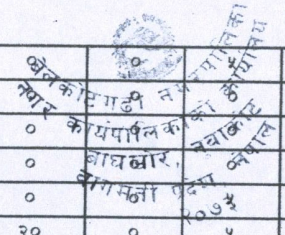 बेलकोटगढी नगरपालिका
नगर कार्यपालिकाको कार्यालय
बाघखोर, नुवाकोट
बागमती प्रदेश, नेपाल
२०७३
० ० ५
० ० ०
० ० ०
० ० ०
० ० १
२० ० ५